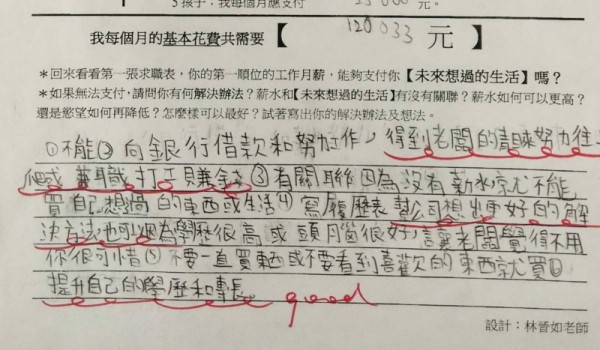 5 孩子：我每個月應支付 25000 元。
我每個月的基本花費共需要【 120033 元 】
＊回來看看第一張求職表，你的第一順位的工作月薪，能夠支付你【未來想過的生活】嗎？
＊如果無法支付，請問你有何解決辦法？薪水和【未來想過的生活】有沒有關聯？薪水如何可以更高？
還是慾望如何再降低？怎麼樣可以最好？試著寫出你的解決辦法及想法。
①不能②向銀行借款和努力工作，得到老闆的青睞努力往上
爬或兼職打工貝兼金③有關聯因為沒有薪水京尤不能
買自己想過的東西或生活④寫履歷表幫公司想出更好的解
決方法也可以因為學歷很高或頭腦很好，讓老闆覺得不用
你很可惜⑤不要一直買東西或不要看到喜歡的東西就買⑥
提升自己的學歷和專長。 good
設計：林晉如老師